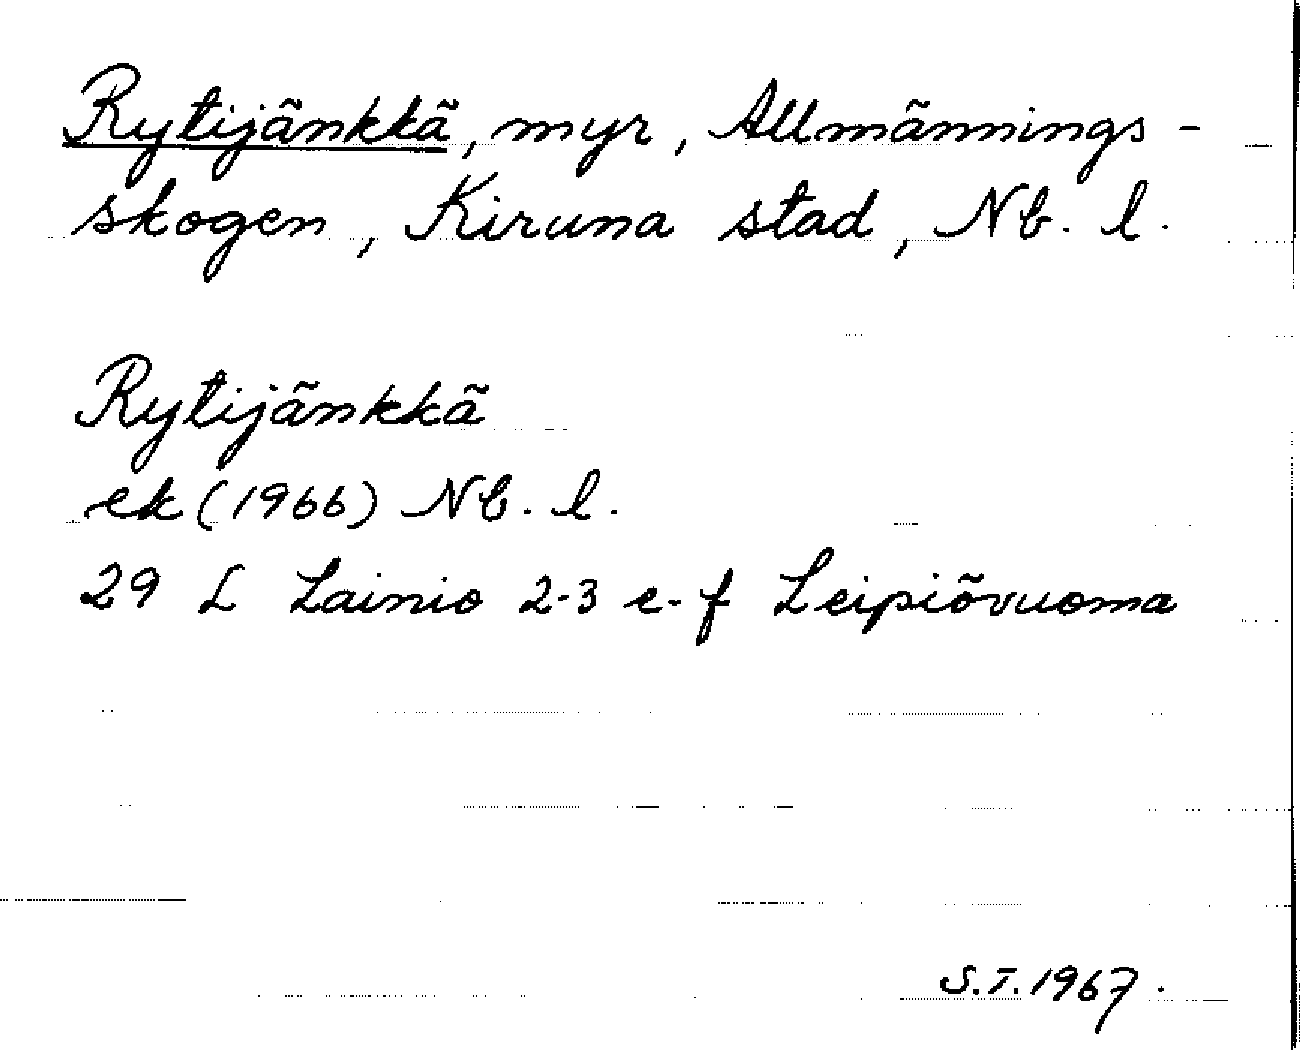 Rytijänkkä, myr, Allmännings-
skogen, Kiruna stad, Nb. l.
Rytijänkkä
ek (1966) Nb. l.
29 L Lainio 2-3 e-f Leipiövuoma
S.T. 1967.